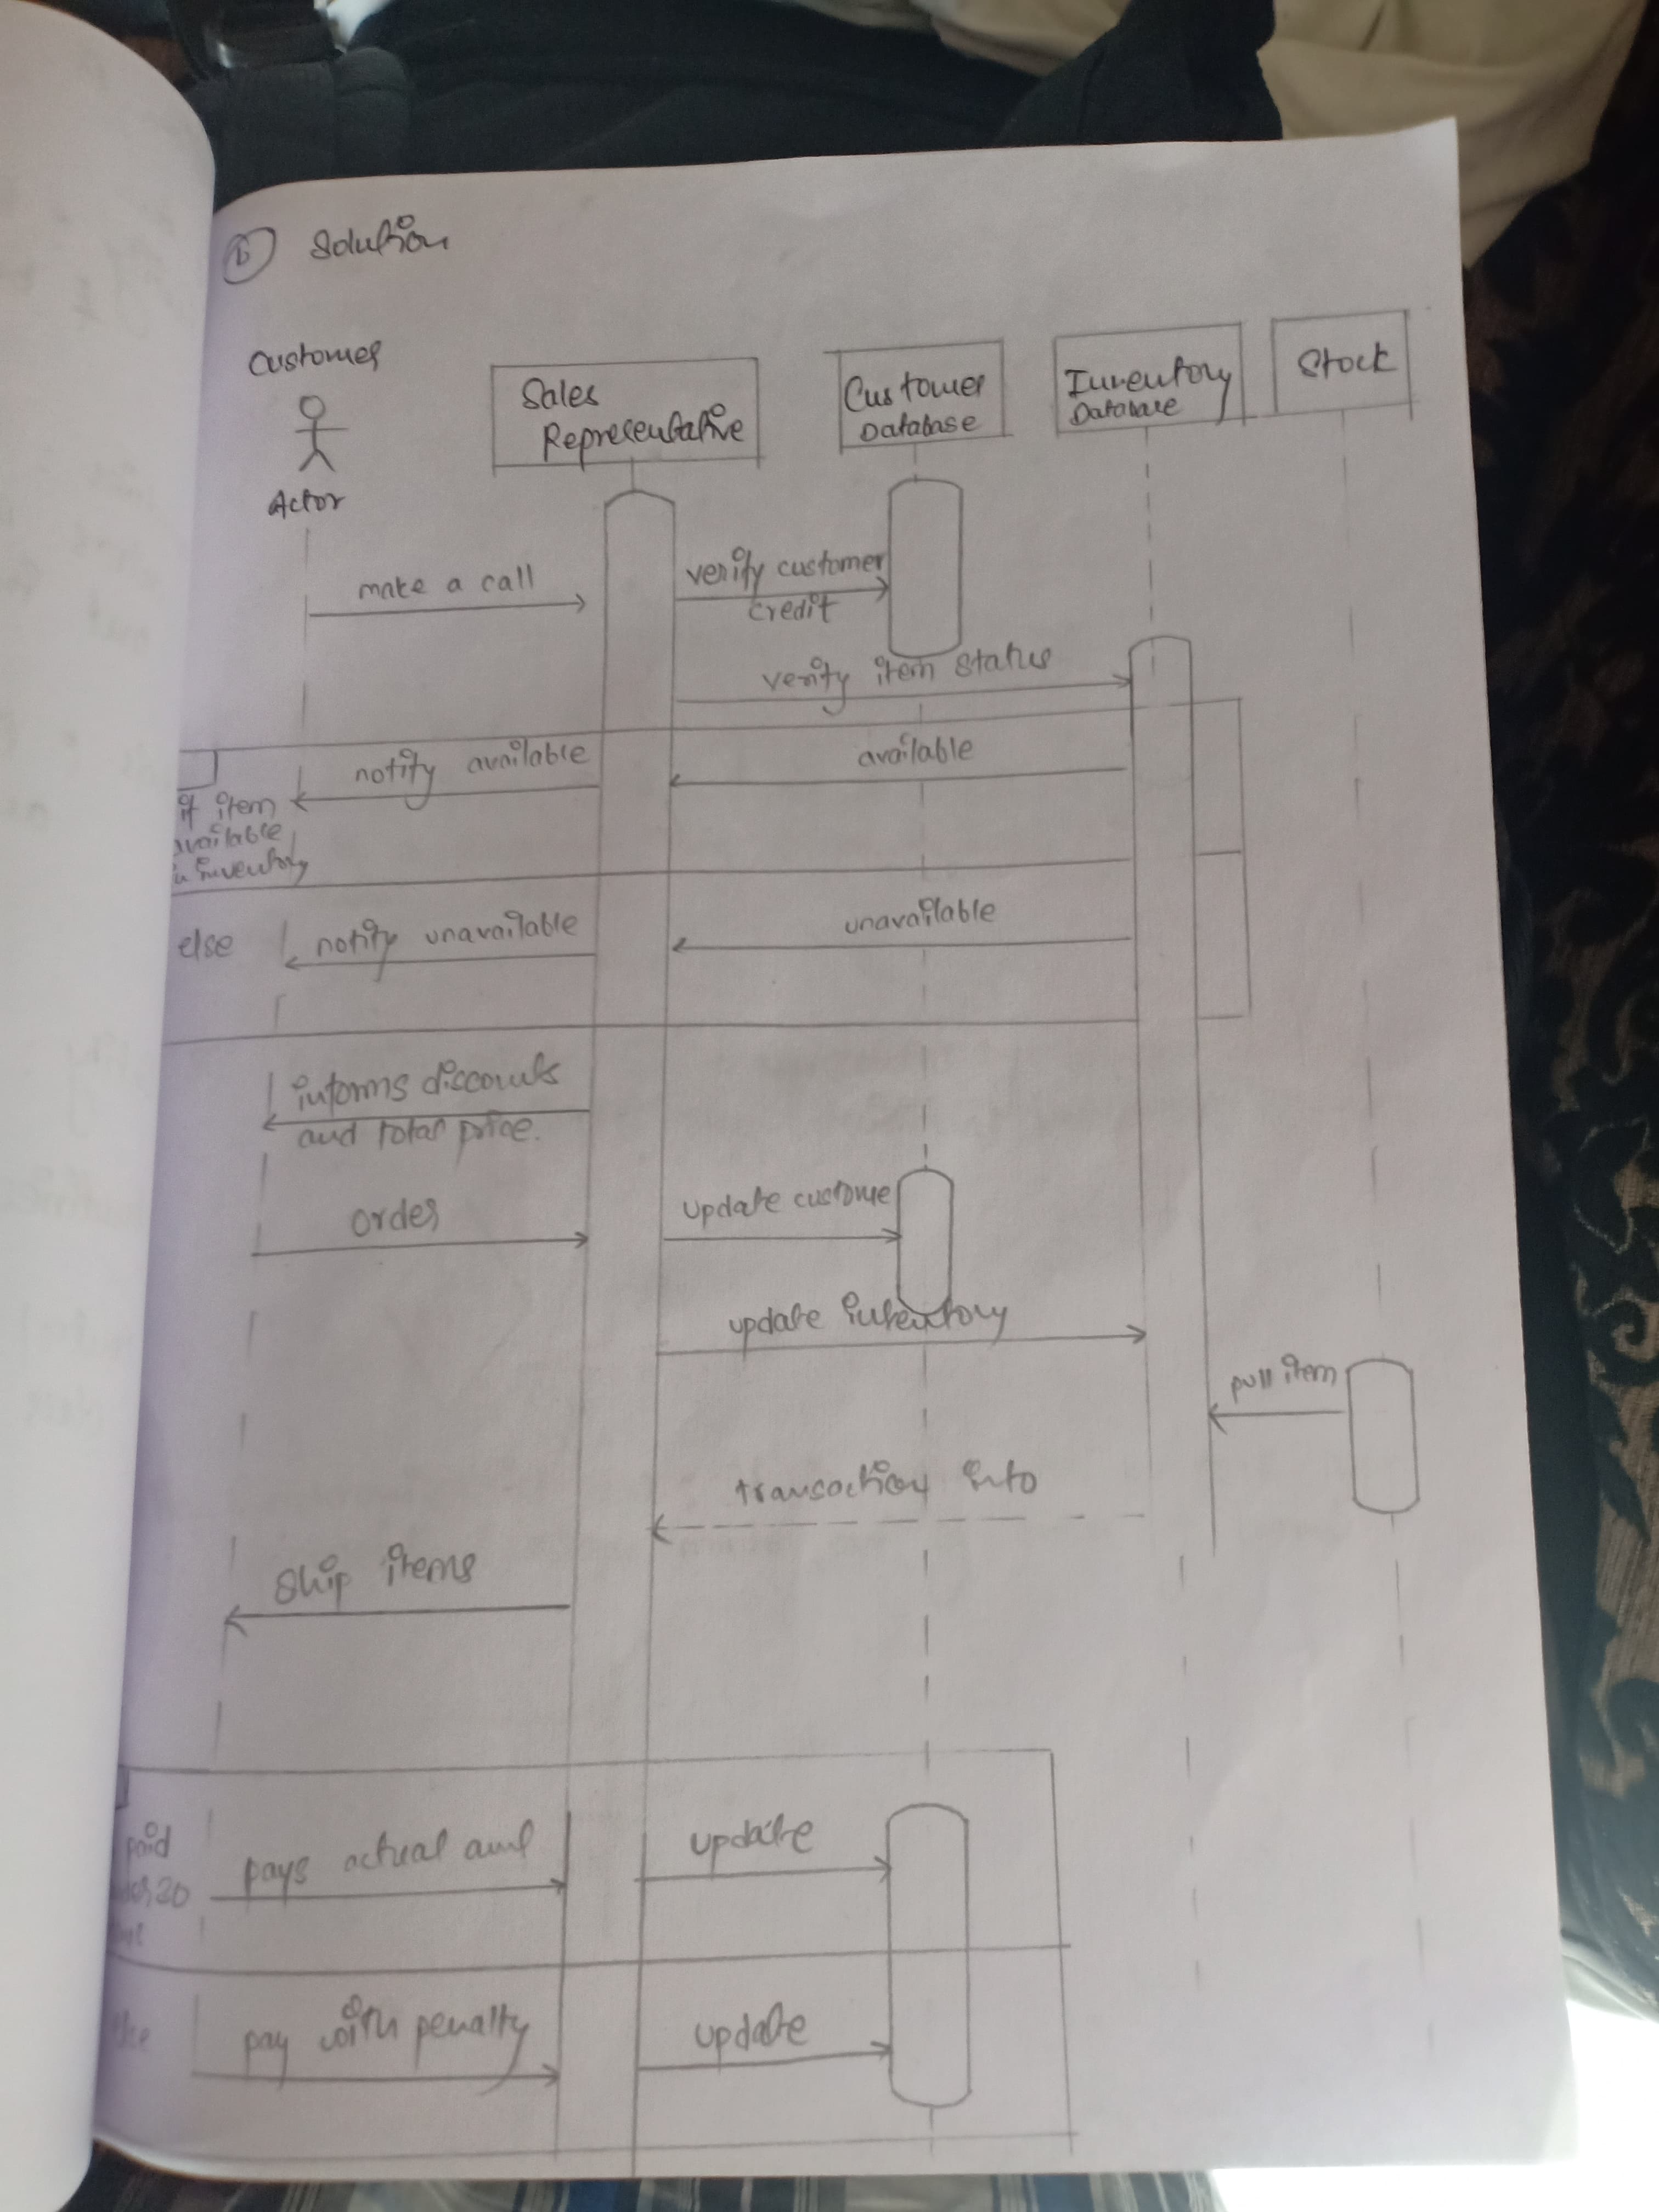 b Solution
Customer
Actor
Sales
Representative
Customer
Database
Inventory
Database
Stock
make a call
verify customer
credit
verify item status
notify available
available
if item
available
inventory
else
notify unavailable
unavailable
informs discounts
and total price.
order
update custome
update inventory
pull item
transaction info
ship items
paid
20
pays actual amt
update
pay with penalty
update